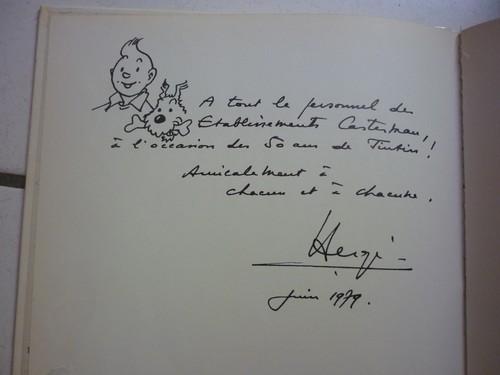 A tout le personnel des
Etablissements Casterman,
à l'occasion des 50 ans de Tintin !
Amicalement à
chacun et à chacune.
Hergé
juin 1979.